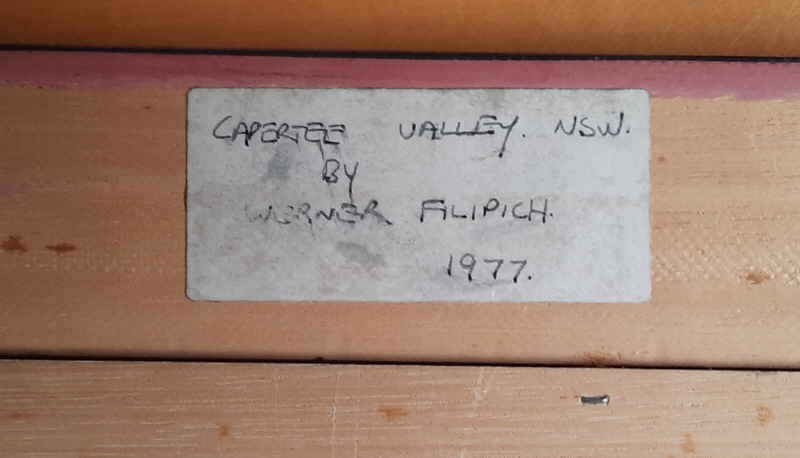 CAPERTEE VALLEY. NSW.
BY
WERNER FILIPICH.
1977.